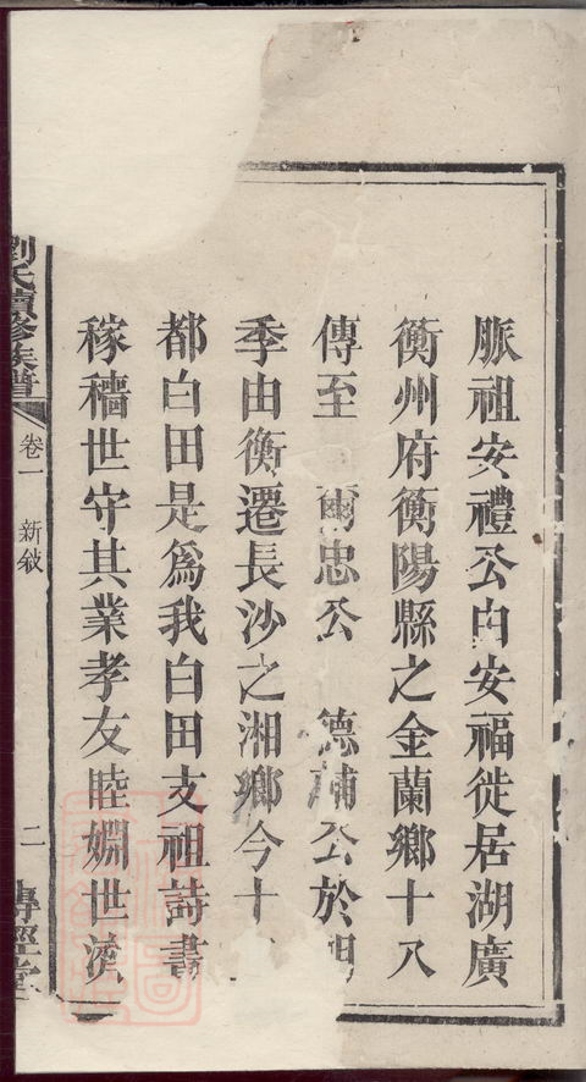 脈祖安禮公由安福徙居湖廣
衡州府衡陽縣之金蘭鄉十八
傳至 爾忠公 德輔公於明
季由衡遷長沙之湘鄉今十
都白田是爲我白田支祖詩書
稼穡世守其業孝友睦婣世流
劉氏續修族譜
卷一 新敘
二
傳經堂